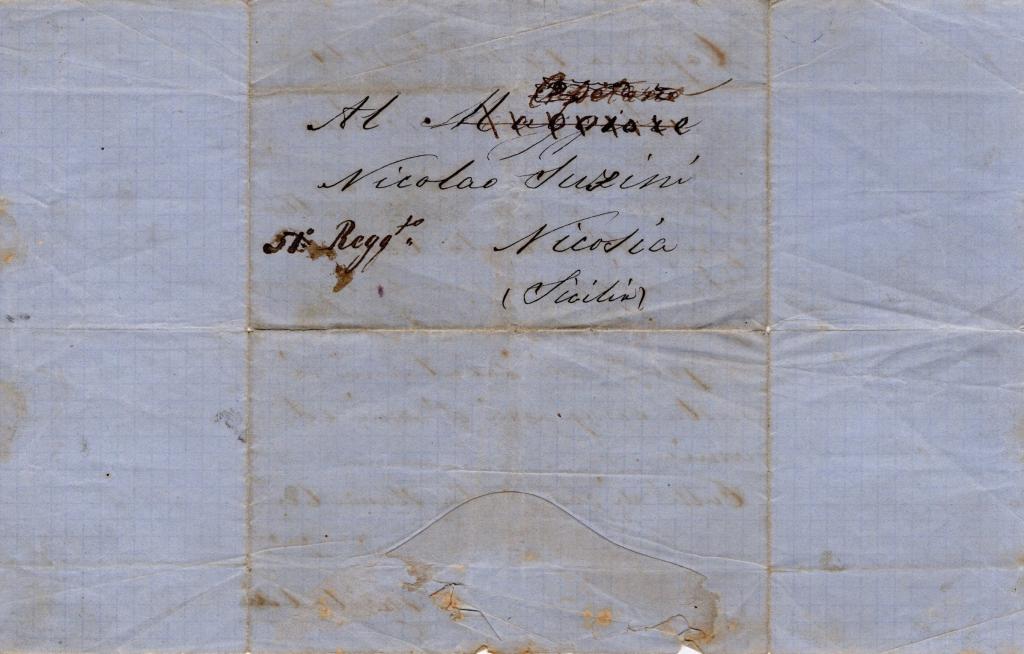 Capitano
Al Maggiore
Nicolao Suzini
51º Reggto. Nicosia
(Sicilia)